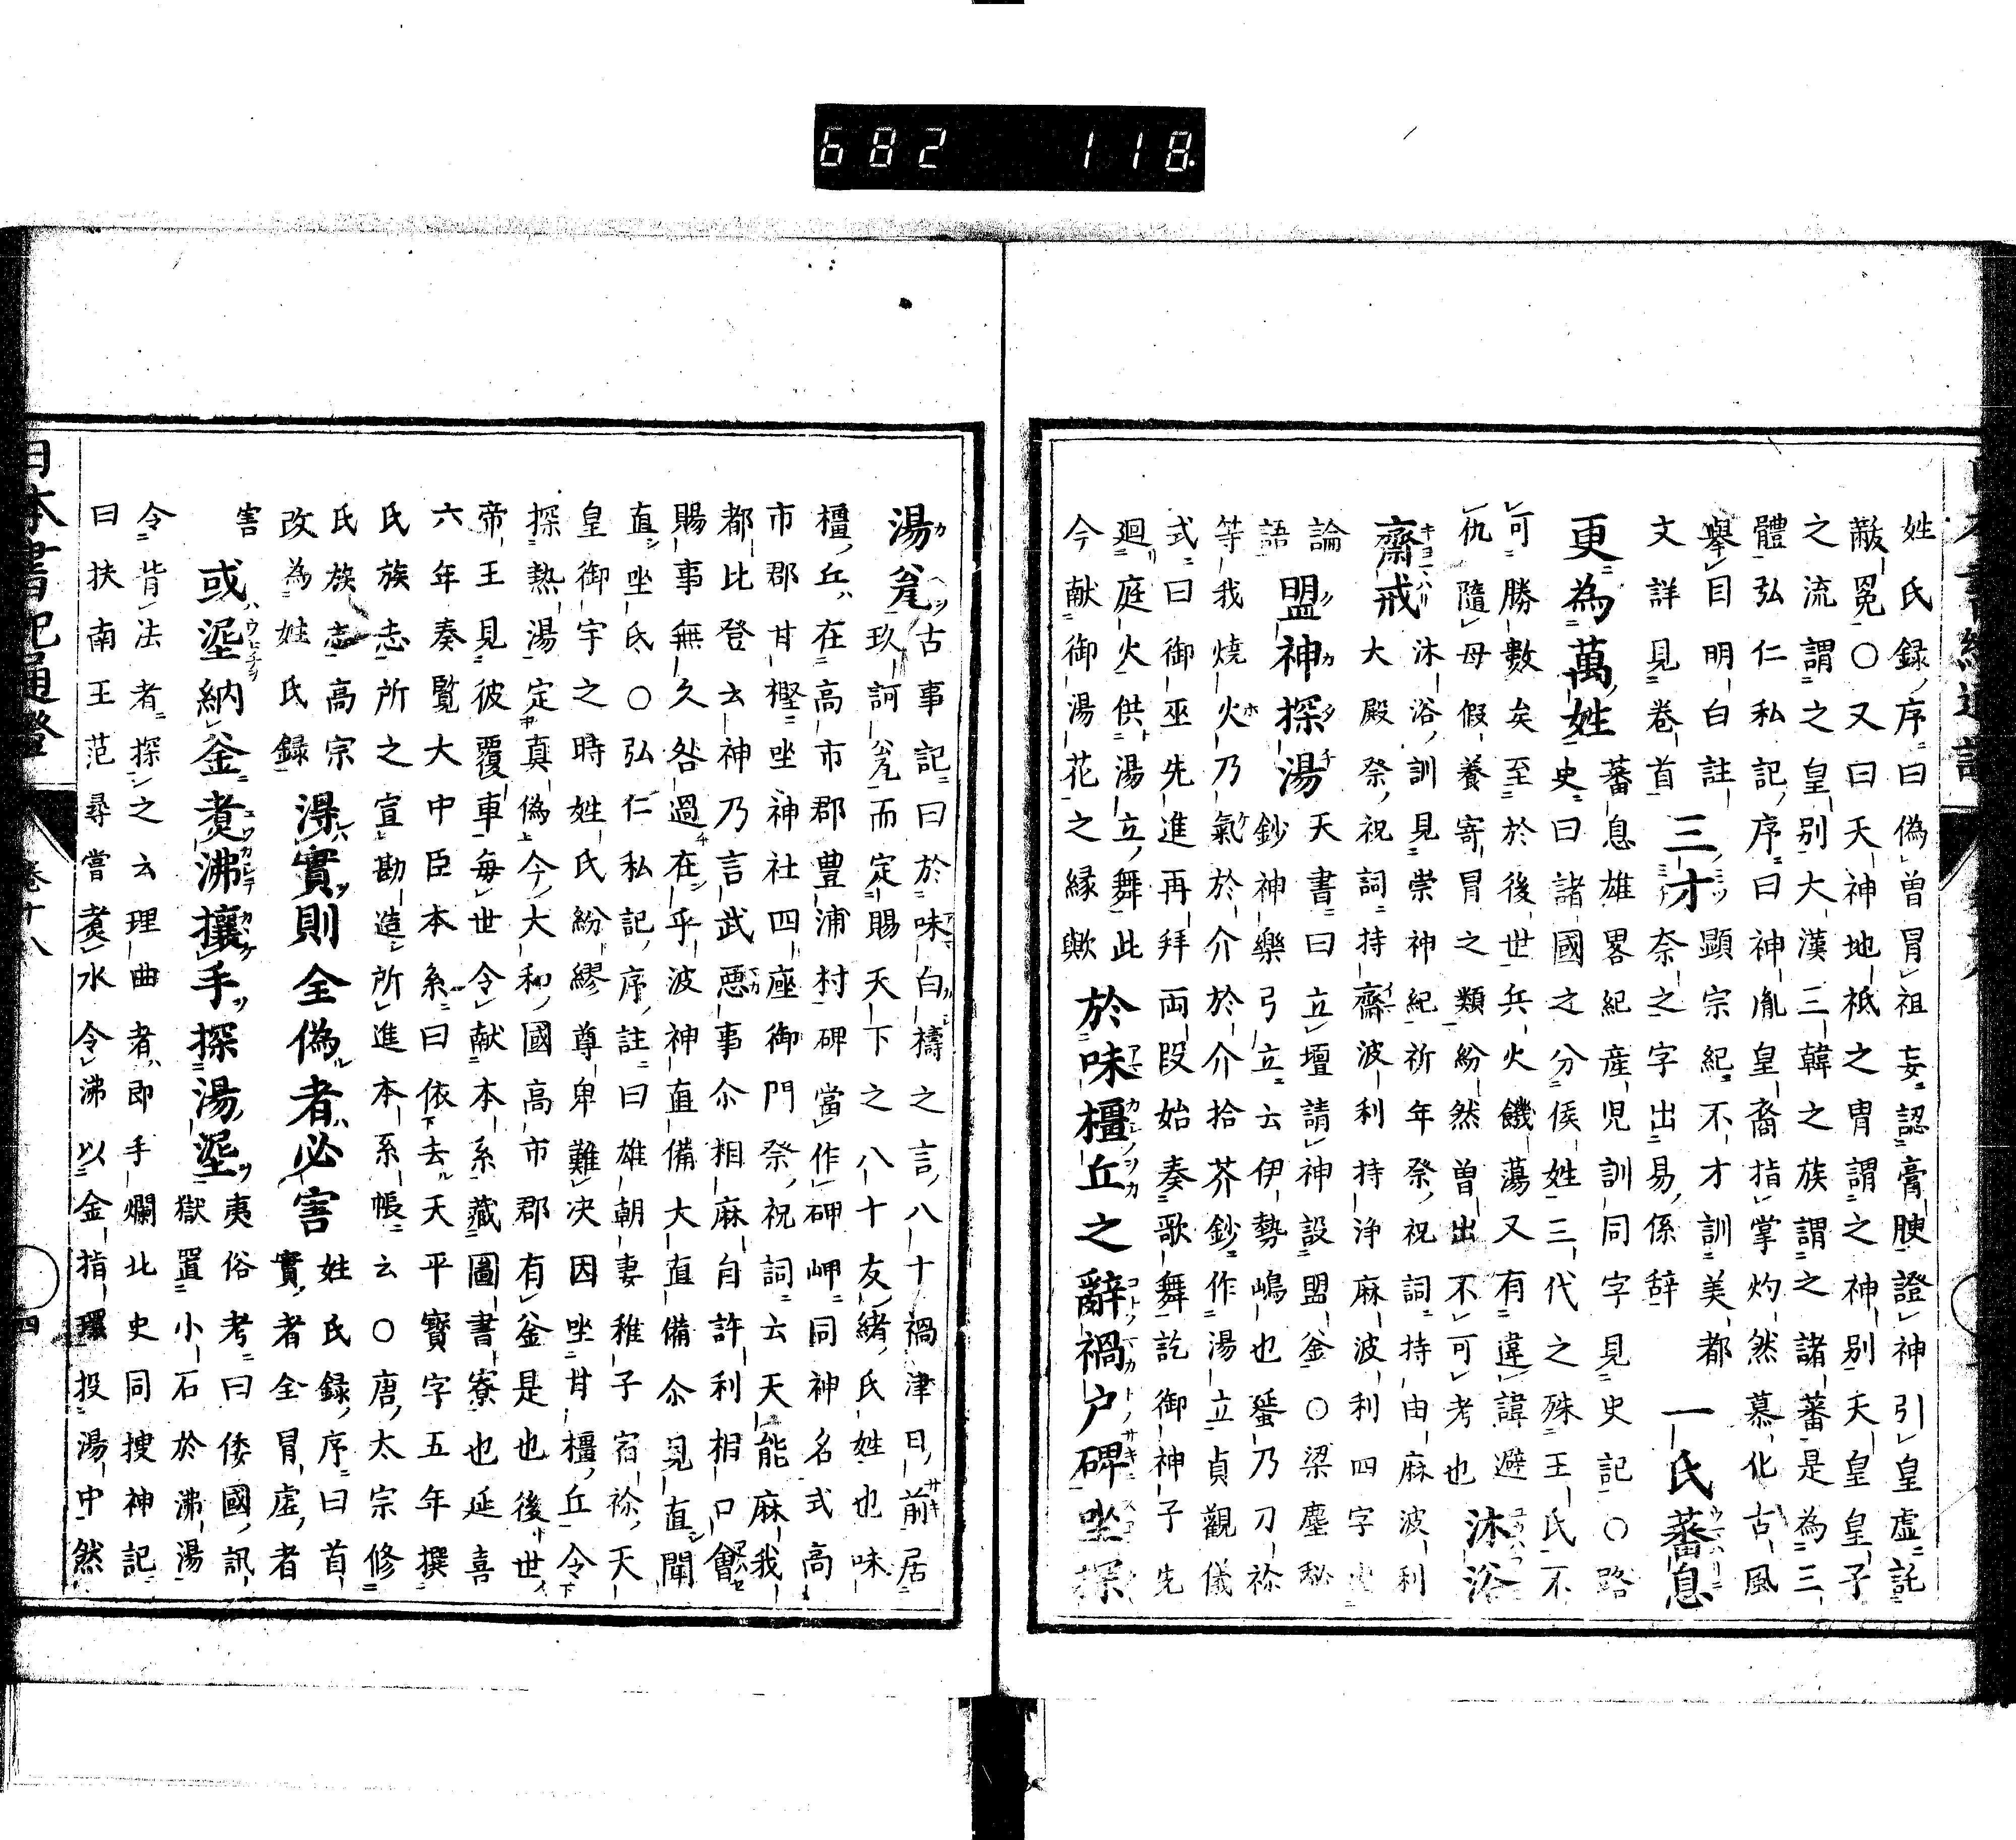 682 118
姓氏録序曰偽曾冒祖妄認膏腴證神引皇虚託
蔽冕〇又曰天神地祇之冑謂之神別天皇皇子
之流謂之皇別大漢三韓之族謂之諸蕃是為三
體弘仁私記序曰神胤皇裔指掌灼然慕化古風
舉目明白註 三才 顯宗紀不才訓美都
文詳見卷首 奈之字出易係辞 一氏蕃息
蕃息雄畧紀産児訓同字見史記〇路
更為萬姓 史曰諸國之分侯姓三代之殊王氏不
可勝數矣至於後世兵火饑蕩又有違諱避
仇隨母假養寄冒之類紛然曽出不可考也 沐浴
齋戒 沐浴訓見崇神紀祈年祭祝詞持由麻波利
大殿祭祝詞持齋波利持浄麻波利四字
論
語 盟神探湯 天書曰立壇請神設盟釜〇梁塵秘
鈔神樂弓立云伊勢嶋也蜑乃刀祢
等我燒火乃氣於介於介拾芥鈔作湯立貞觀儀
式曰御巫先進再拜両段始奏歌舞訖御神子先
廻庭火供湯立舞此
今献御湯花之縁歟 於味橿丘之辭禍戸𥓓坐探
湯瓮 古事記曰於味白檮之言八十禍津日前居
玖訶瓮而定賜天下之八十友緒氏姓也味
橿丘在高市郡豊浦村碑當作𥓓岬同神名式高
市郡甘樫坐神社四座御門祭祝詞云天能麻我
都比登云神乃言武悪事尒相麻自許利相口會
賜事無久咎過在乎波神直備大直備尒見直聞
直坐氐〇弘仁私記序註曰雄朝妻稚子宿祢天
皇御宇之時姓氏紛繆尊卑難决因坐甘橿丘令
探熱湯定真偽今大和國高市郡有釜是也後世
帝王見彼覆車毎世令献本系藏圖書寮也延喜
六年奏覧大中臣本系曰依去天平寶字五年撰
氏族志所之宣勘造所進本系帳云〇唐太宗修
氏族志高宗
改為姓氏録 淂實則全偽者必害 姓氏録序曰首
實者全冒虚者
害 或埿納釜煑沸攘手探湯埿 夷俗考曰倭國訊
獄置小石於沸湯
令背法者探之云理曲者即手爛北史同捜神記
曰扶南王范尋嘗煑水令沸以金指環投湯中然
日本書紀通證
卷十八
四